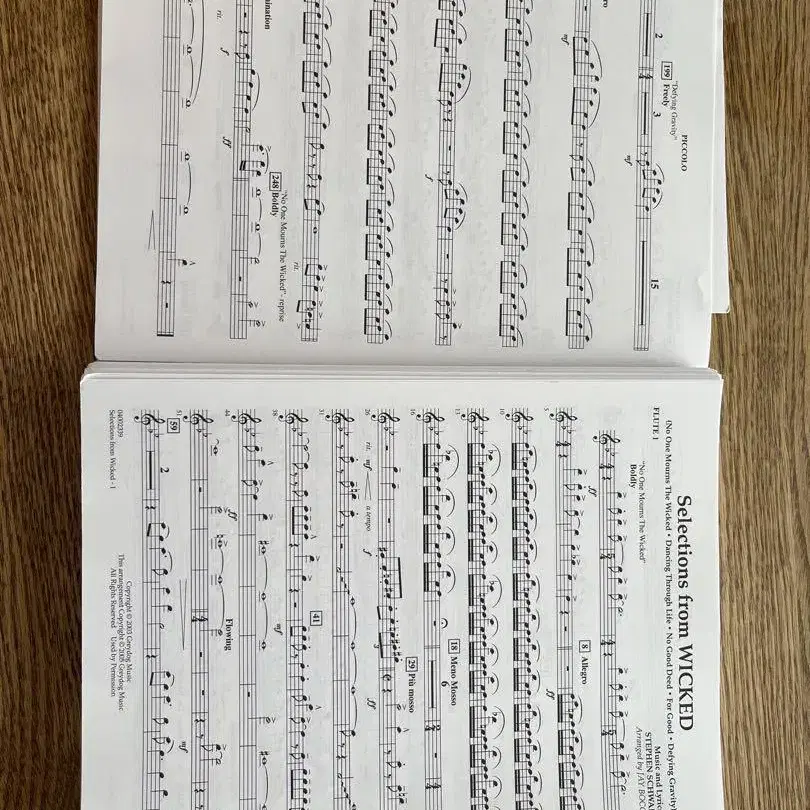 PICCOLO
"Defying Gravity"
199 Freely
2
3
15
mf
mf
f
rit.
"No One Mourns The Wicked" - reprise
248 Boldly
rit.
f
ff
Selections from WICKED
(No One Mourns The Wicked • Dancing Through Life • No Good Deed • For Good • Defying
FLUTE 1
Music and
STEPHEN
Arranged by JAY
"No One Mourns The Wicked"
Boldly
ff
5
8 Allegro
ff
10
13
16
18 Meno Mosso
6
26
rit.
mf
a tempo
f
29 Più mosso
3
ff
31
41
38
mf
44
ff
Flowing
51
mf
59
2
Copyright © 2003 Greydog Music
This arrangement Copyright © 2005 Greydog Music
All Rights Reserved Used by Permission
04002339
Selections from Wicked - 1